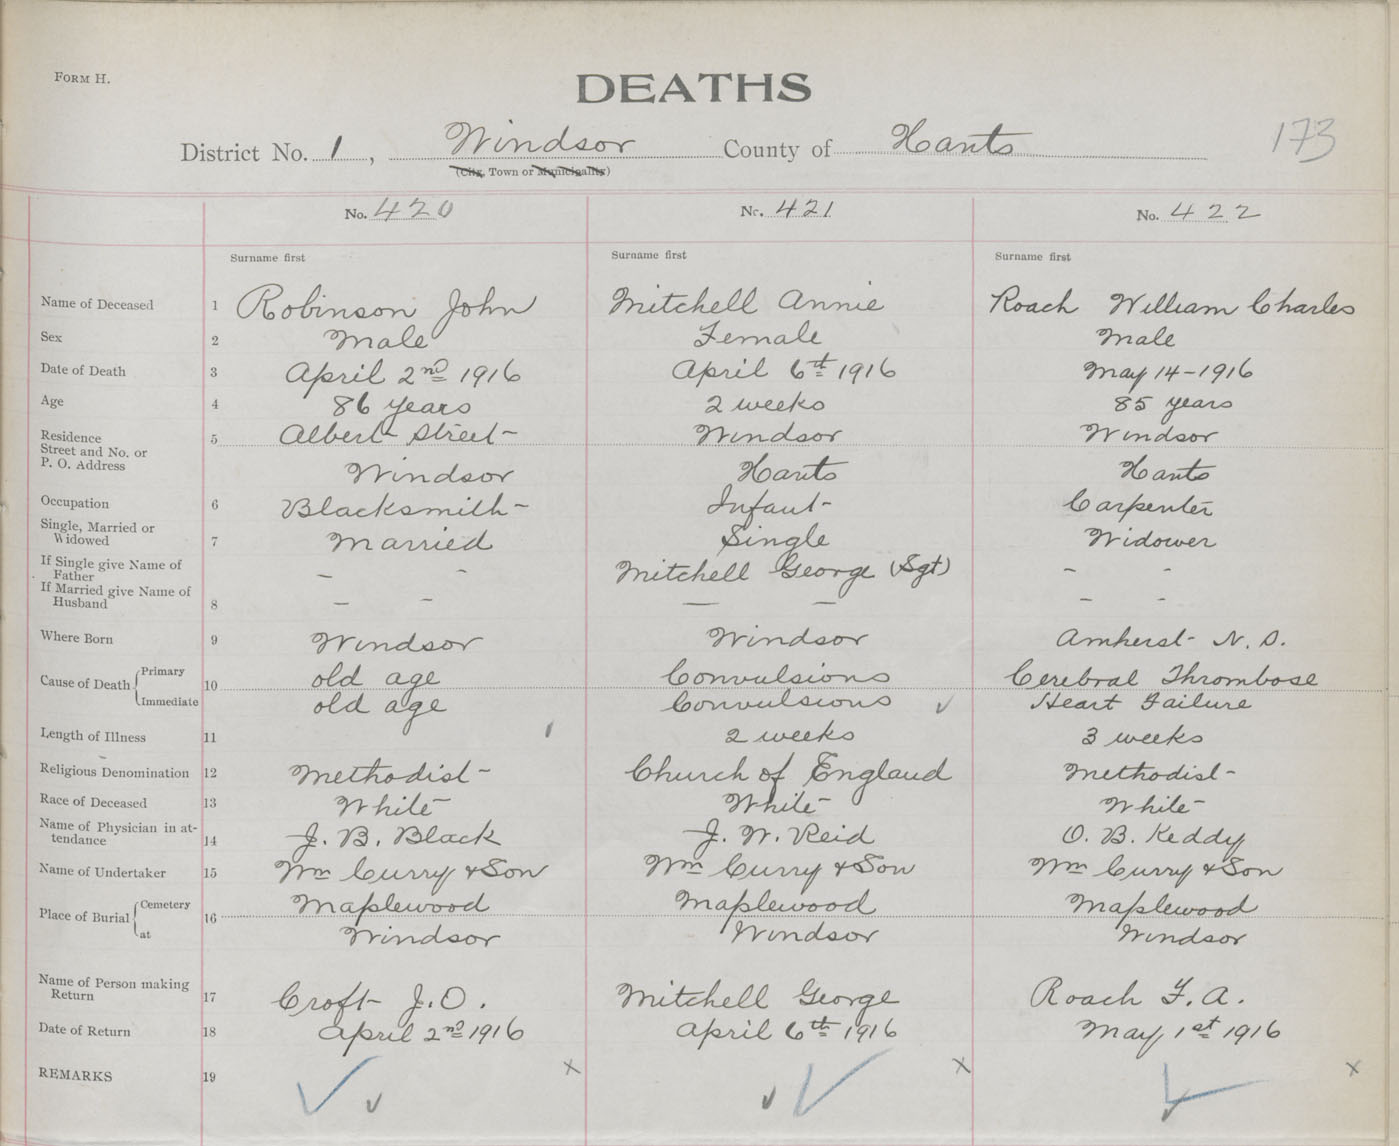 FORM H.
DEATHS
173
District No. 1, Windsor County of Hants
(City, Town or Municipality)
No. 420 No. 421 No. 422
Surname first Surname first Surname first
Name of Deceased 1 Robinson John Mitchell Annie Roach William Charles
Sex 2 Male Female Male
Date of Death 3 April 2nd 1916 April 6th 1916 May 14-1916
Age 4 86 years 2 weeks 85 years
Residence 5 Albert Street Windsor Windsor
Street and No. or
P. O. Address Windsor Hants Hants
Occupation 6 Blacksmith Infant Carpenter
Single, Married or
Widowed 7 Married Single Widower
If Single give Name of
Father – – Mitchell George (Sgt) – –
If Married give Name of
Husband 8 – – – – – –
Where Born 9 Windsor Windsor Amherst N. S.
Cause of Death Primary 10 old age Convulsions Cerebral Thrombose
Immediate old age Convulsions Heart Failure
Length of Illness 11 2 weeks 3 weeks
Religious Denomination 12 Methodist Church of England Methodist
Race of Deceased 13 White White White
Name of Physician in at-
tendance 14 J. B. Black J. W. Reid O. B. Keddy
Name of Undertaker 15 Wm Curry & Son Wm Curry & Son Wm Curry & Son
Place of Burial Cemetery 16 Maplewood Maplewood Maplewood
at Windsor Windsor Windsor
Name of Person making
Return 17 Croft J. O. Mitchell George Roach F. A.
Date of Return 18 April 2nd 1916 April 6th 1916 May 1st 1916
REMARKS 19 x x x